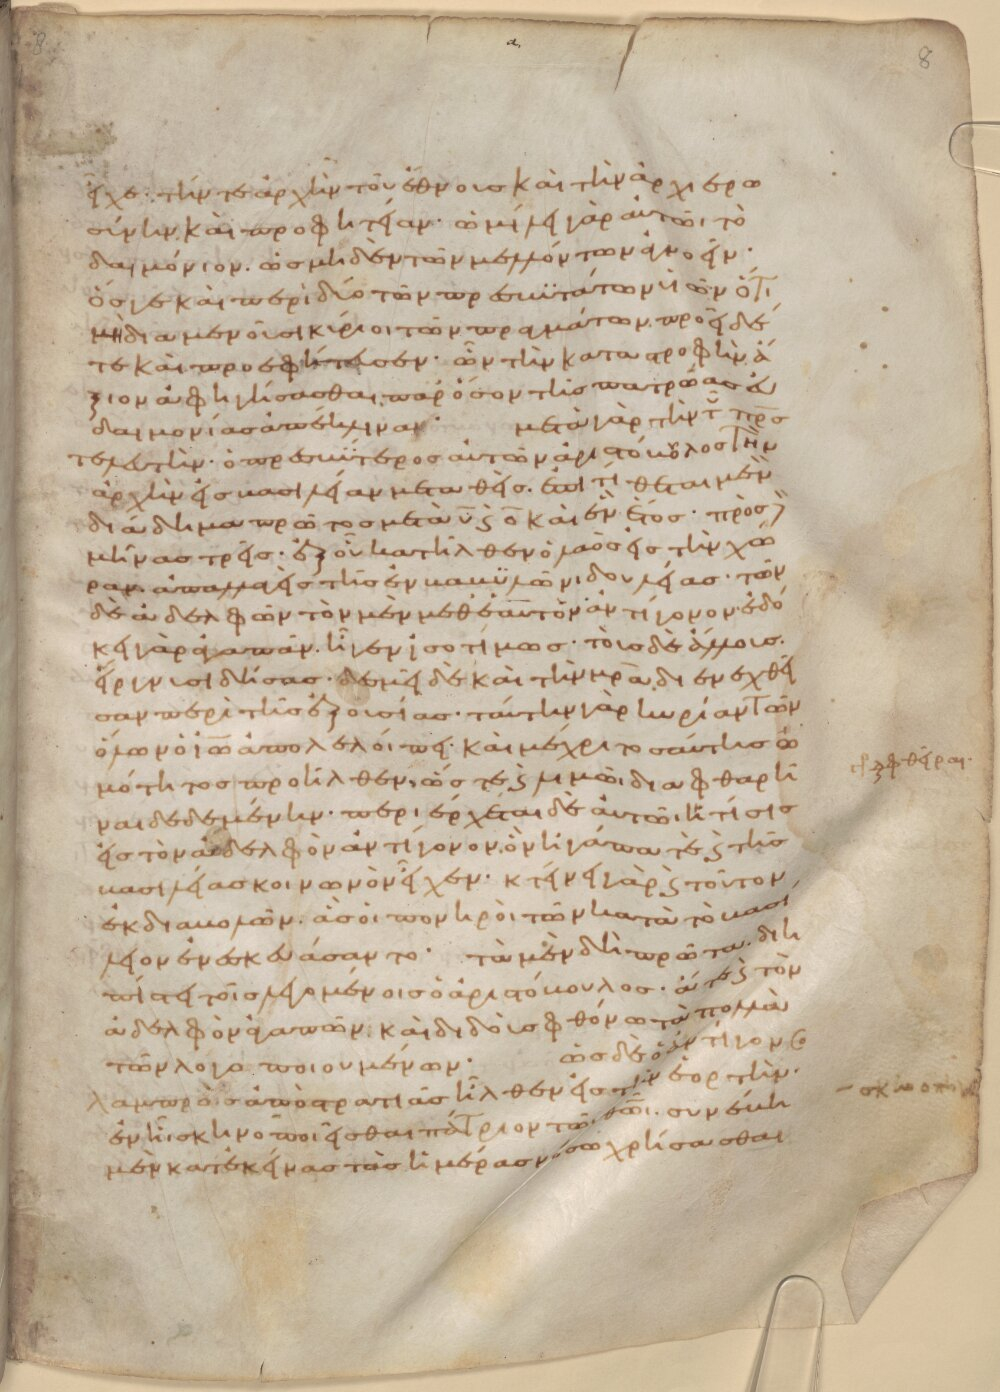 εἶχε· τήν τε ἀρχὴν τοῦ ἔθνους καὶ τὴν ἀρχιερω
σύνην καὶ προφητείαν· ὡμίλει γὰρ αὐτῶι τὸ
δαιμόνιον. ὡς μηδὲν τῶν μελλόντων ἀγνοεῖν·
ὅς γε καὶ περὶ δύο τῶν πρεσβυτάτων υἱῶν ὅτι
μὴ διαμενοῦσι κύριοι τῶν πραγμάτων. προεῖδέ
τε καὶ προεφήτευσεν· ὧν τὴν καταστροφὴν ἄ
ξιον ἀφηγήσασθαι. παρόσον τῆς πατρώας εὐ
δαιμονίας ἀπέκλιναν· μετὰ γὰρ τὴν τοῦ πρς
τελευτὴν· ὁ πρεσβύτερος αὐτῶν ἀριστόβουλος τὴν
ἀρχὴν εἰς βασιλείαν μεταθεὶς. τίθεται μὲν
διάδημα πρῶτος μετὰ υ ς ο καὶ ἓν ἔτος· πρὸς
μῆνας τρεῖς· ἐξ οὗ κατῆλθεν ὁ λαὸς εἰς τὴν χώ
ραν. ἀπαλλαγεὶς τῆς ἐν βαβυλῶνι δουλείας· τῶν
δὲ ἀδελφῶν τὸν μὲν μεθ' ἑαυτὸν ἀντίγονον. ἐδό
κει γὰρ ἀγαπᾶν. ἦγεν ἰσοτίμως· τοὺς δὲ ἄλλους.
εἵργνυσι δήσας· δεσμεῖ δὲ καὶ τὴν μρα διενεχθεῖ
σαν περὶ τῆς ἐξουσίας· ταύτην γὰρ κυρίαν τῶν
ὅλων ὁ ἰω ἀπολελοίπει· καὶ μέχρι τοσαύτης ὠ
μότητος προῆλθεν, ὥστε ς λιμῶι διαφθαρῆ
ναι δεδεμένην· περιέρχεται δὲ αὐτῶι ἡ τίσις
εἰς τὸν ἀδελφὸν ἀντίγονον. ὃν ἠγάπα τὲ ς τῆς
βασιλείας κοινωνὸν εἶχεν· κτείνει γὰρ ς τοῦτον
ἐκ διαβολῶν. ἃς οἱ πονηροὶ τῶν κατὰ τὸ βασί
λειον ἐνεσκευάσαντο· τὰ μὲν δὴ πρῶτα. διη
πίστει τοῖς λεγομένοις ὁ ἀριστόβουλος· ἅτε ς τὸν
ἀδελφὸν ἀγαπῶν. καὶ διδοὺς φθόνω τὰ πολλὰ
τῶν λογοποιουμένων· ὡς δὲ ὁ ἀντίγονος
λαμπρὸς ἀπὸ στρατιᾶς ἦλθεν εἰς τὴν ἑορτὴν.
ἐν ἧι σκηνοποιεῖσθαι πάτριον τῶι θῶι. συνέβη
μὲν κατ' ἐκείνας τὰς ἡμέρας νόσω χρήσασθαι